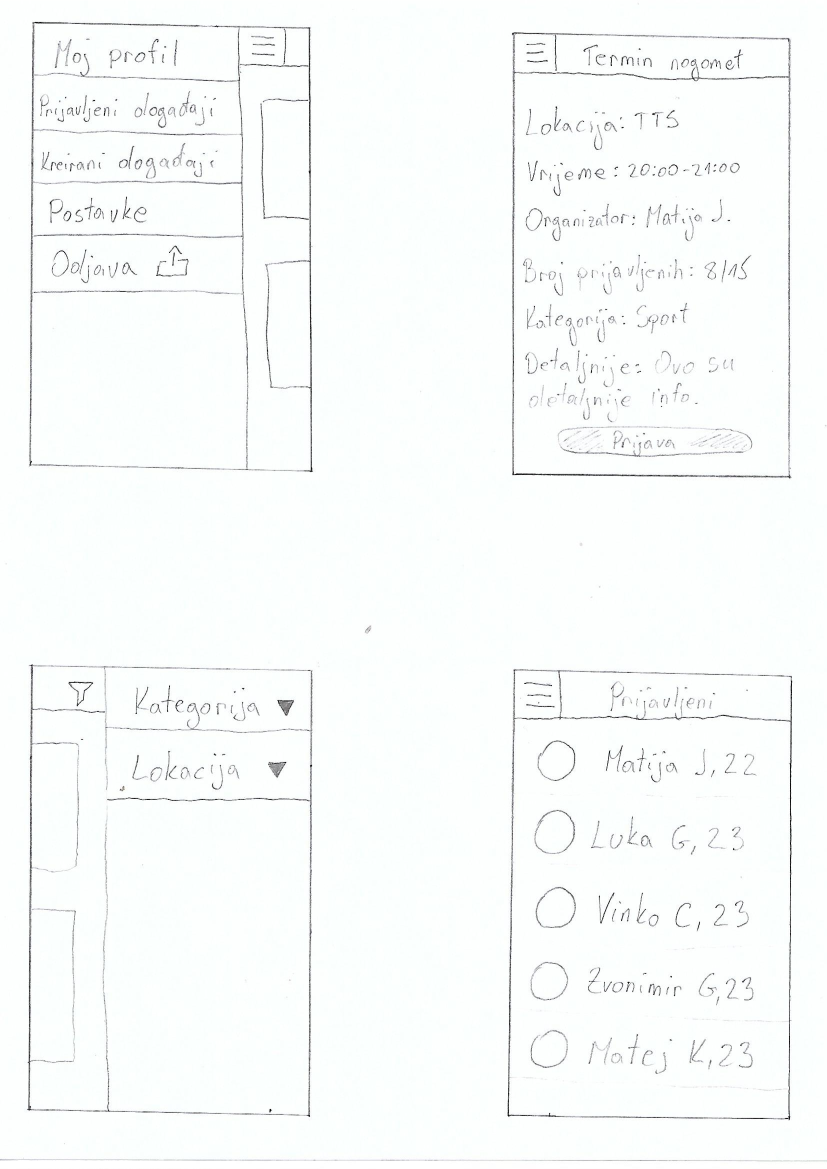 Moj profil
Prijavljeni događaji
Kreirani događaji
Postavke
Odjava
Termin nogomet
Lokacija: TTS
Vrijeme: 20:00-21:00
Organizator: Matija J.
Broj prijavljenih: 8/15
Kategorija: Sport
Detaljnije: Ovo su
detaljnije info.
Prijava
Kategorija
Lokacija
Prijavljeni
Matija J, 22
Luka G, 23
Vinko C, 23
Zvonimir G, 23
Matej K, 23